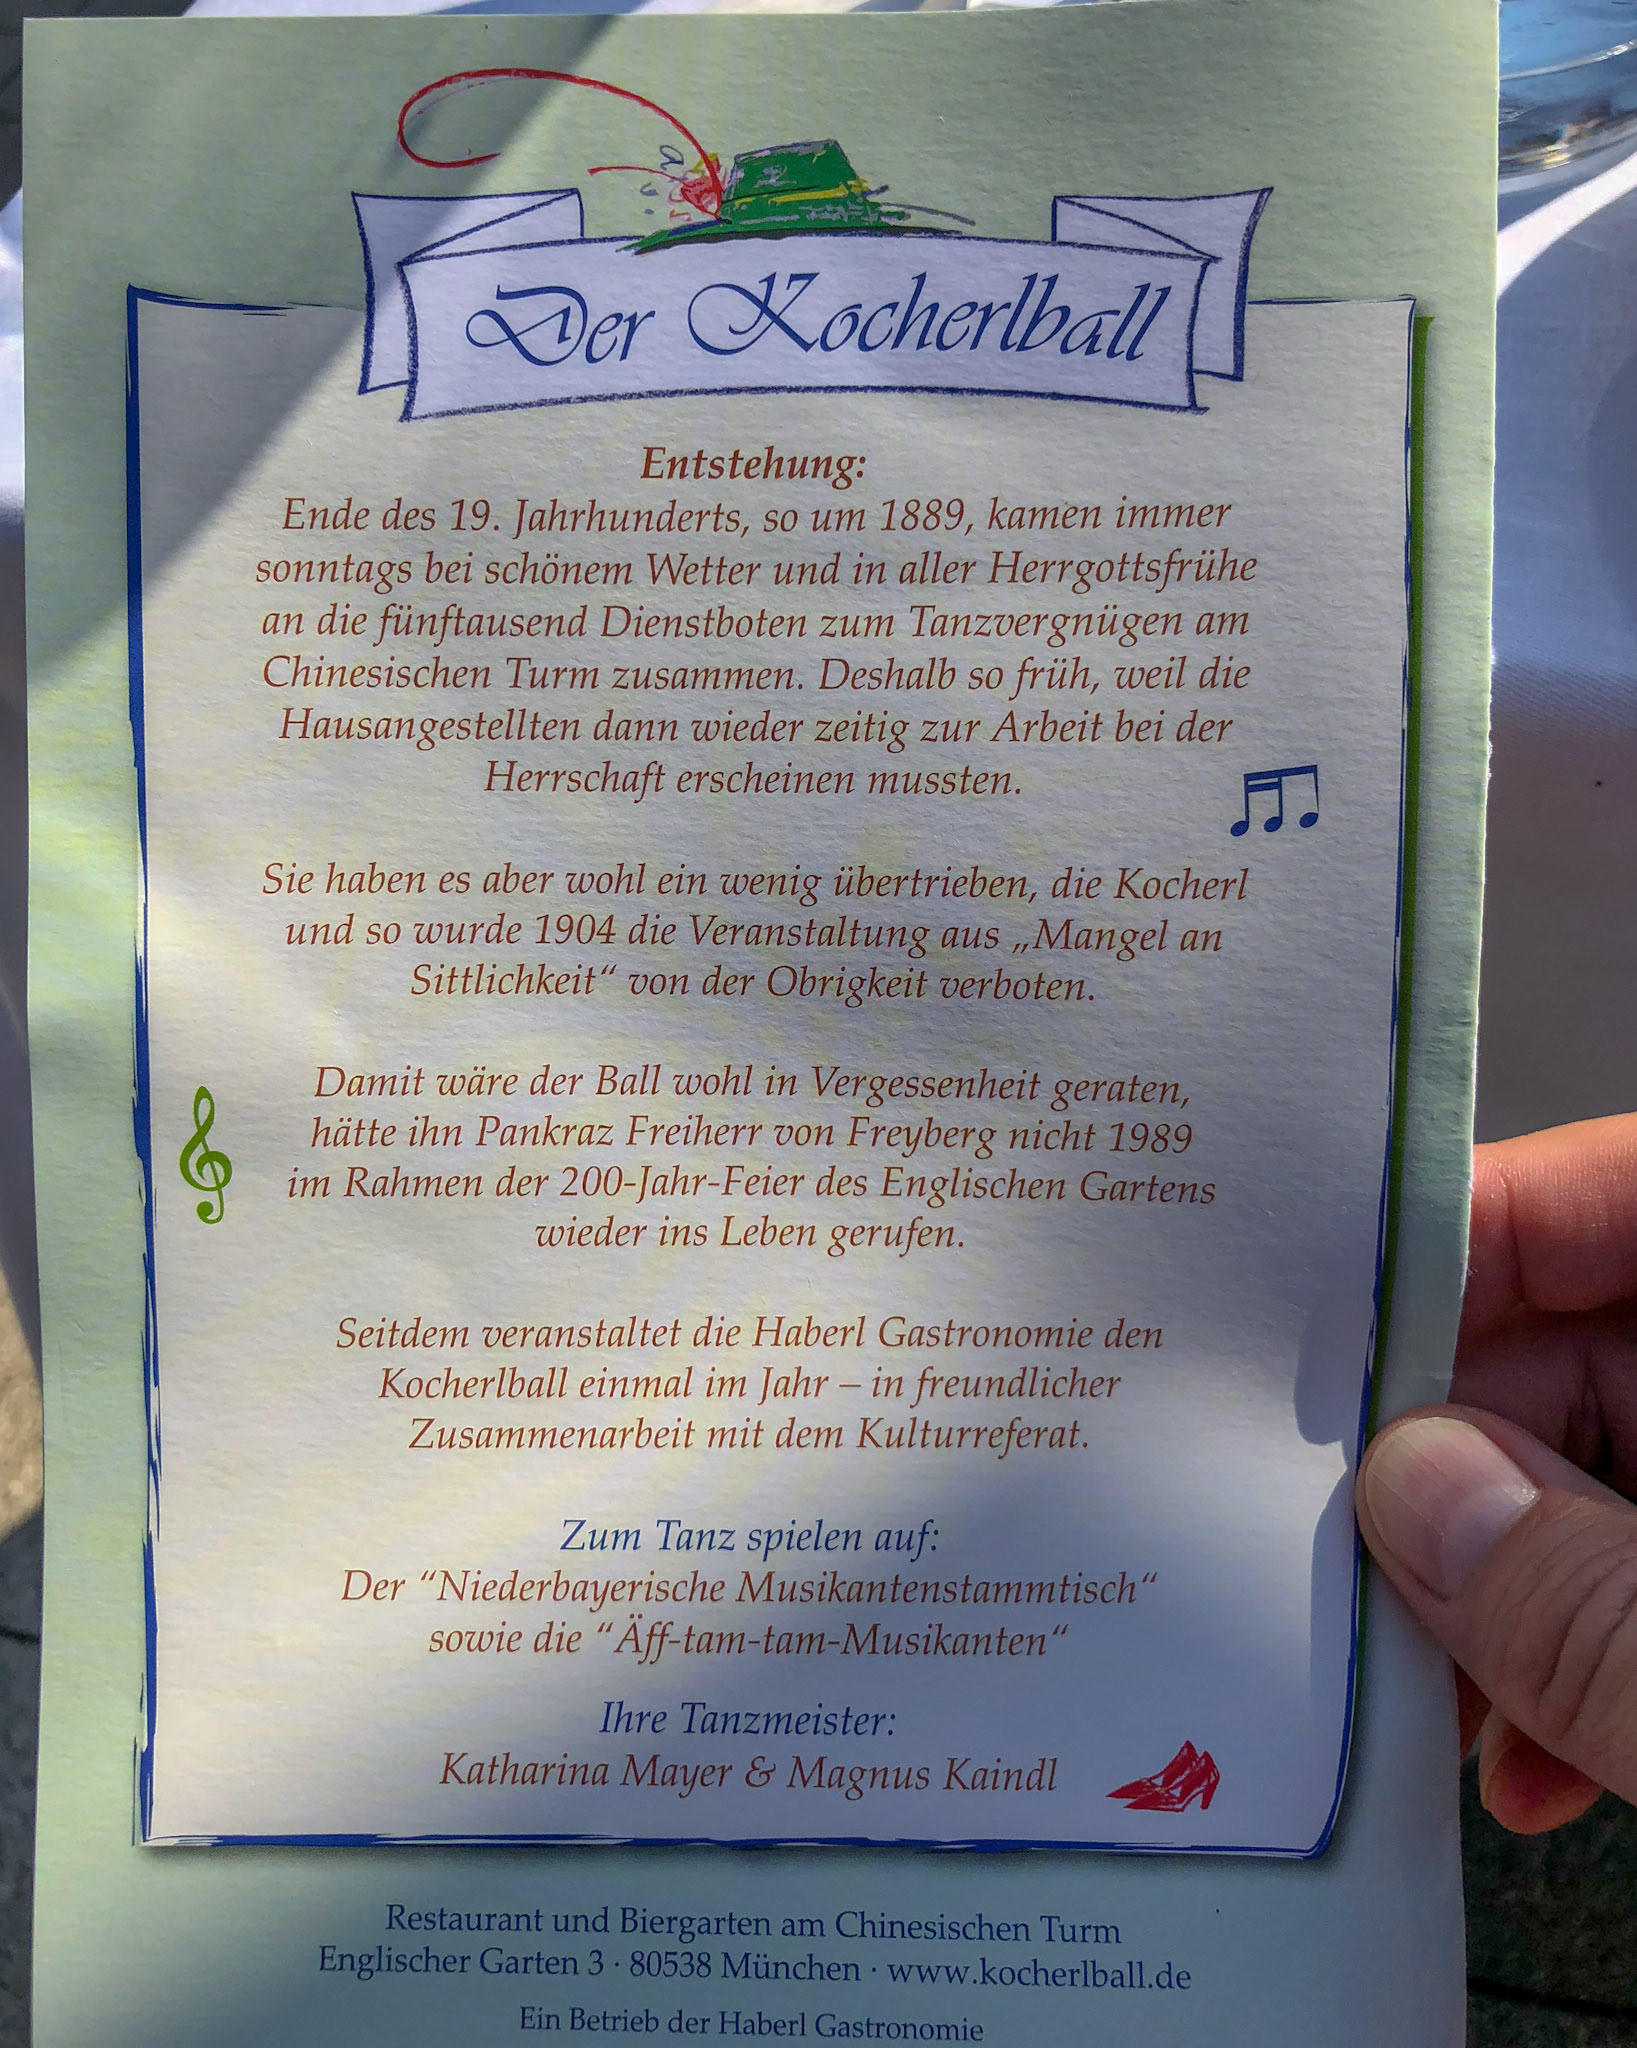 Der Kocherlball
Entstehung:
Ende des 19. Jahrhunderts, so um 1889, kamen immer
sonntags bei schönem Wetter und in aller Herrgottsfrühe
an die fünftausend Dienstboten zum Tanzvergnügen am
Chinesischen Turm zusammen. Deshalb so früh, weil die
Hausangestellten dann wieder zeitig zur Arbeit bei der
Herrschaft erscheinen mussten.
Sie haben es aber wohl ein wenig übertrieben, die Kocherl
und so wurde 1904 die Veranstaltung aus „Mangel an
Sittlichkeit“ von der Obrigkeit verboten.
Damit wäre der Ball wohl in Vergessenheit geraten,
hätte ihn Pankraz Freiherr von Freyberg nicht 1989
im Rahmen der 200-Jahr-Feier des Englischen Gartens
wieder ins Leben gerufen.
Seitdem veranstaltet die Haberl Gastronomie den
Kocherlball einmal im Jahr – in freundlicher
Zusammenarbeit mit dem Kulturreferat.
Zum Tanz spielen auf:
Der “Niederbayerische Musikantenstammtisch“
sowie die “Äff-tam-tam-Musikanten“
Ihre Tanzmeister:
Katharina Mayer & Magnus Kaindl
Restaurant und Biergarten am Chinesischen Turm
Englischer Garten 3 · 80538 München · www.kocherlball.de
Ein Betrieb der Haberl Gastronomie